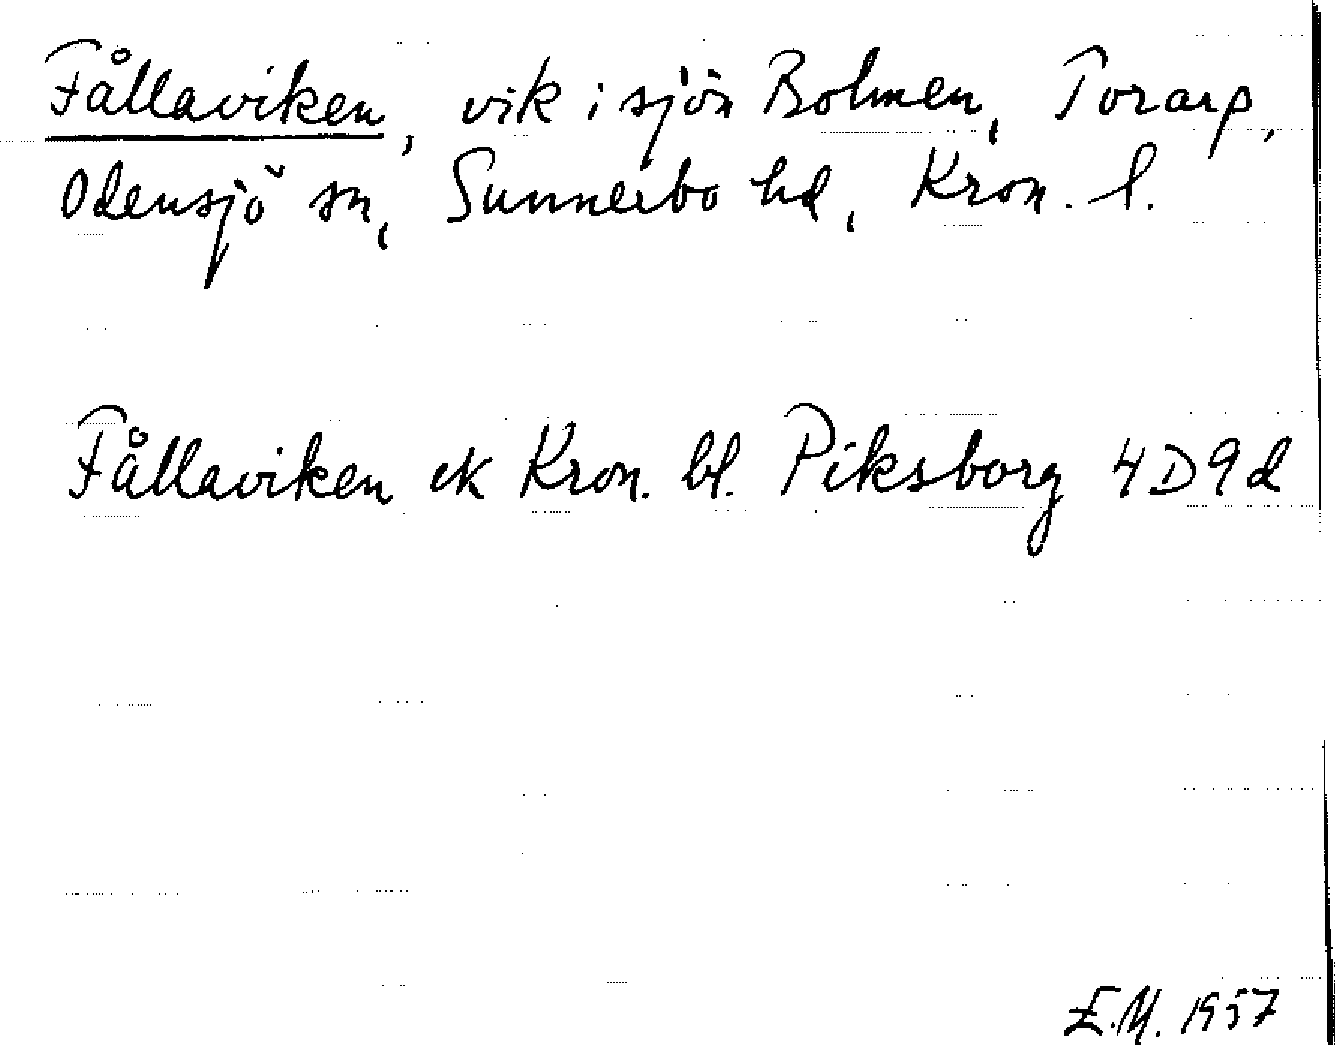 Fållaviken, vik i sjön Bolmen, Torarp,
Odensjö sn, Sunnerbo hd, Kron. l.
Fållaviken ek Kron. bl. Piksborg 4D9d
E.M. 1957